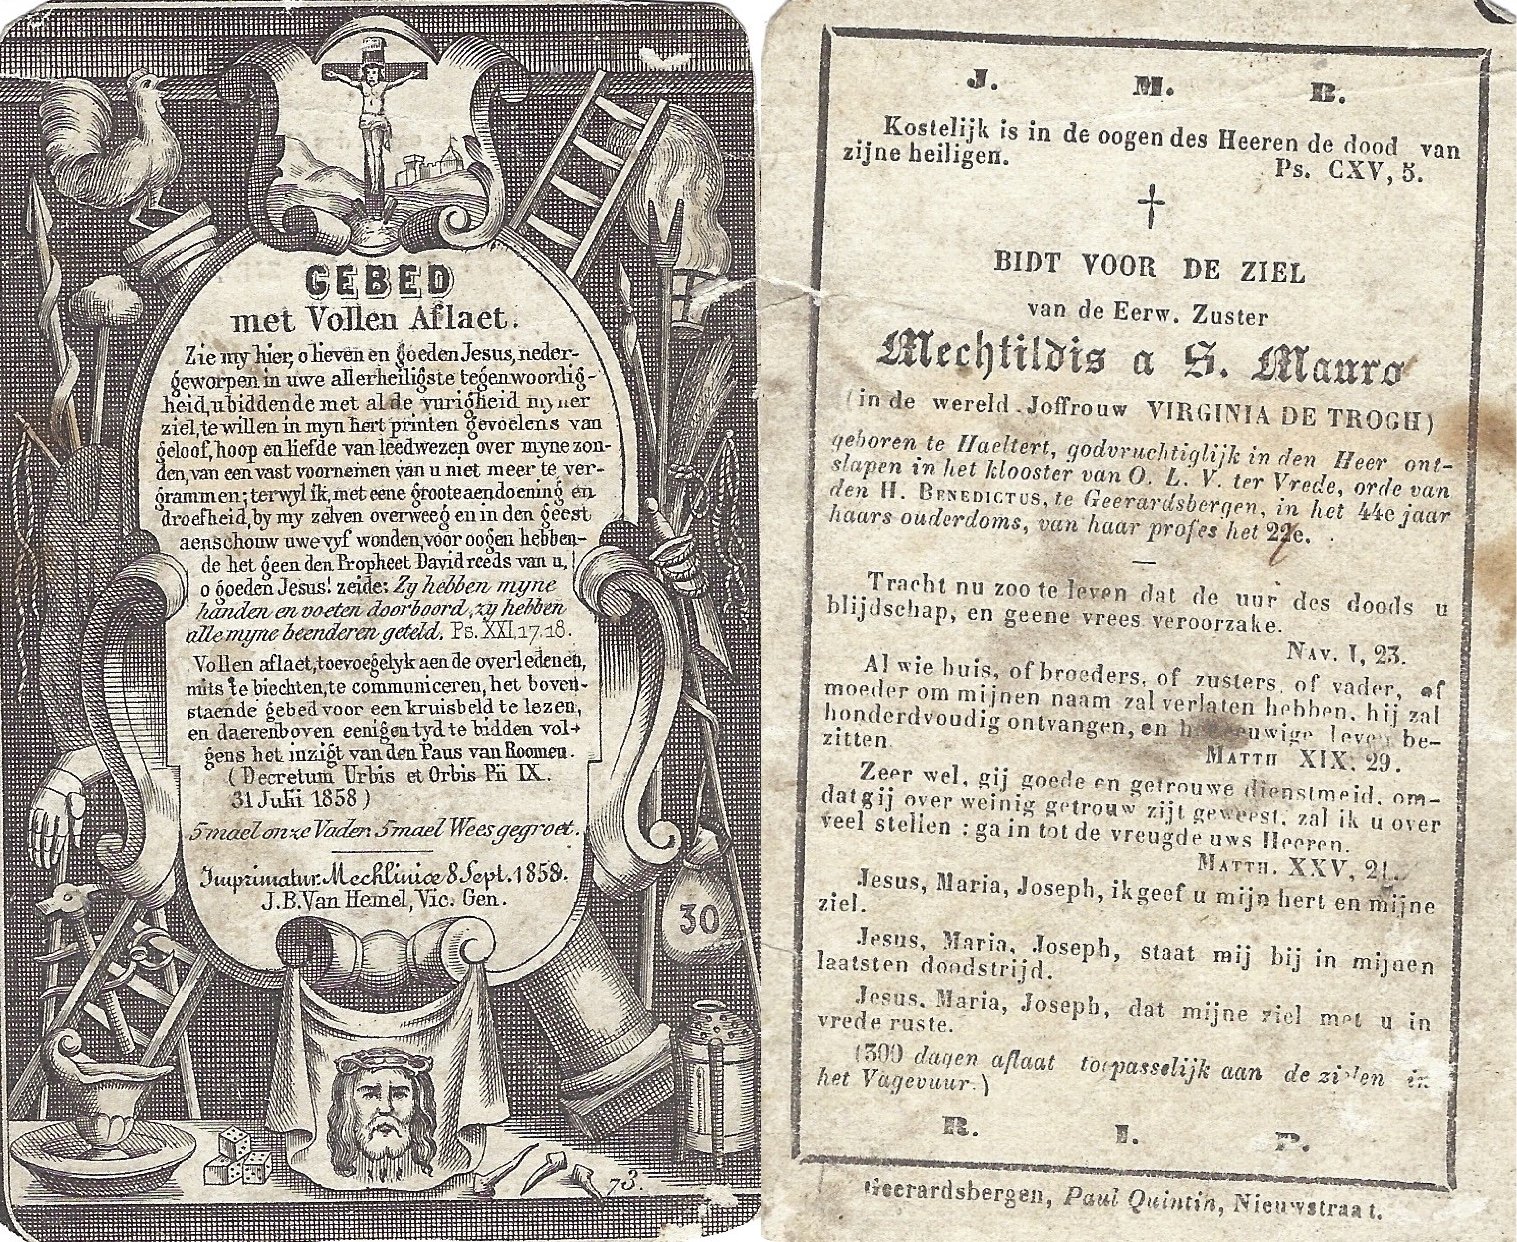 GEBED
met Vollen Aflaet.
Zie my hier, o lieven en goeden Jesus, neder-
geworpen in uwe allerheiligste tegenwoordig-
heid, u biddende met al de vurigheid myner
ziel, te willen in myn hert printen gevoelens van
geloof, hoop en liefde van leedwezen over myne zon-
den, van een vast voornemen van u niet meer te ver-
grammen; terwyl ik, met eene groote aendoening en
droefheid, by my zelven overweeg en in den geest
aenschouw uwe vyf wonden, vóór oogen hebben-
de het geen den Propheet David reeds van u,
o goeden Jesus! zeide: Zy hebben myne
handen en voeten doorboord, zy hebben
alle myne beenderen geteld. Ps. XXI, 17. 18.
Vollen aflaet, toevoegelyk aen de overledenen,
mits te biechten, te communiceren, het boven-
staende gebed voor een kruisbeld te lezen,
en daerenboven eenigen tyd te bidden vol-
gens het inzigt van den Paus van Roomen.
(Decretum Urbis et Orbis Pii IX.
31 Juli 1858)
5 mael onze Vader. 5 mael Wees gegroet.
Imprimatur. Mechliniæ 8 Sept. 1858.
J.B. Van Hemel, Vic. Gen.
30
73.
J. M. B.
Kostelijk is in de oogen des Heeren de dood van
zijne heiligen. Ps. CXV, 5.
BIDT VOOR DE ZIEL
van de Eerw. Zuster
Mechtildis a S. Mauro
(in de wereld Joffrouw VIRGINIA DE TROGH)
geboren te Haeltert, godvruchtiglijk in den Heer ont-
slapen in het klooster van O. L. V. ter Vrede, orde van
den H. BENEDICTUS, te Geerardsbergen, in het 44e jaar
haars ouderdoms, van haar profes het 22e.
Tracht nu zoo te leven dat de uur des doods u
blijdschap, en geene vrees veroorzake.
NAV. I, 23.
Al wie huis, of broeders, of zusters, of vader, of
moeder om mijnen naam zal verlaten hebben, hij zal
honderdvoudig ontvangen, en het eeuwige leven be-
zitten. MATTH XIX. 29.
Zeer wel, gij goede en getrouwe dienstmeid, om-
dat gij over weinig getrouw zijt geweest, zal ik u over
veel stellen : ga in tot de vreugde uws Heeren.
MATTH. XXV, 21.
Jesus, Maria, Joseph, ik geef u mijn hert en mijne
ziel.
Jesus, Maria, Joseph, staat mij bij in mijnen
laatsten doodstrijd.
Jesus, Maria, Joseph, dat mijne ziel met u in
vrede ruste.
(300 dagen aflaat toepasselijk aan de zielen in
het Vagevuur.)
R. I. P.
Geerardsbergen, Paul Quintin, Nieuwstraat.